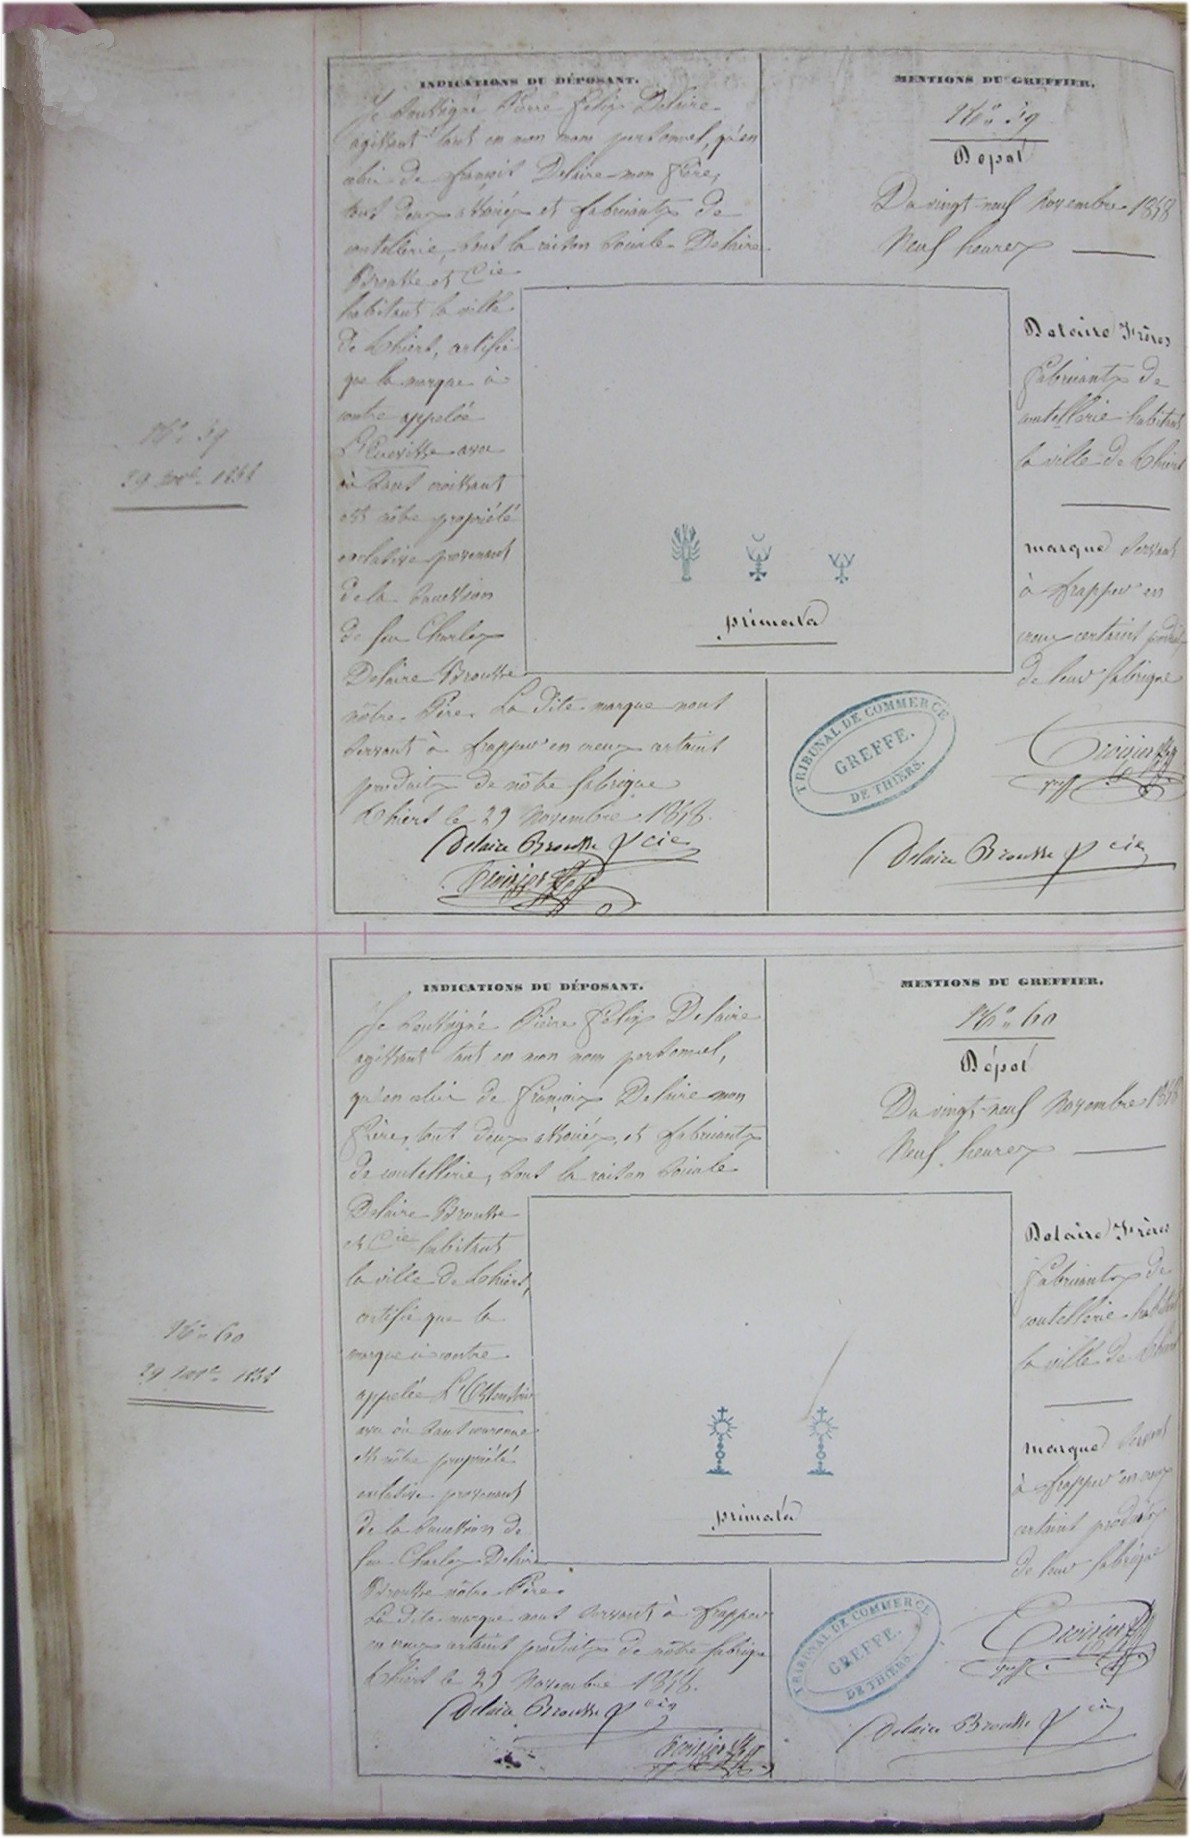 INDICATIONS DU DÉPOSANT.
Je Soussigné Pierre Félix Delaire
agissant tant en mon nom personnel, qu'en
celui de françois Delaire mon frère,
tous deux associés et fabricants de
coutellerie, sous la raison Sociale Delaire
Brousse et Cie
habitant la ville
de Thiers, certifie
que la marque ci
contre appelée
L'Ecrevisse avec
ou sans croissant
est nôtre propriété
exclusive provenant
de la Succession
de feu Charles
Delaire Brousse
nôtre Père. La dite marque nous
Servant à frapper en creux certains
produits de nôtre fabrique
Thiers le 29 Novembre 1858.
Delaire Brousse & Cie
MENTIONS DU GREFFIER.
No 59
Dépôt
Du vingt-neuf Novembre 1858
Neuf heures
Delaire Frères
Fabricants de
coutellerie habitant
la ville de Thiers
marque Servant
à frapper en
creux certains produits
de leur fabrique
primata
TRIBUNAL DE COMMERCE
GREFFE.
DE THIERS.
Delaire Brousse & Cie
No 59
29 nov. 1858
INDICATIONS DU DÉPOSANT.
Je Soussigné Pierre Félix Delaire
agissant tant en mon nom personnel,
qu'en celui de François Delaire mon
frère, tous deux associés, et fabricants
de coutellerie, sous la raison Sociale
Delaire Brousse
et Cie habitant
la ville de Thiers,
certifie que la
marque ci contre
appelée L'Ostensoir
avec ou sans couronne
est nôtre propriété
exclusive provenant
de la Succession de
feu Charles Delaire
Brousse nôtre Père.
La dite marque nous Servant à frapper
en creux certains produits de nôtre fabrique
Thiers le 29 Novembre 1858.
Delaire Brousse & Cie
MENTIONS DU GREFFIER.
No 60
Dépôt
Du vingt-neuf Novembre 1858
Neuf heures
Delaire Frères
Fabricants de
coutellerie habitant
la ville de Thiers
marque Servant
à frapper en creux
certains produits
de leur fabrique
primata
TRIBUNAL DE COMMERCE
GREFFE.
DE THIERS.
Delaire Brousse & Cie
No 60
29 nov. 1858